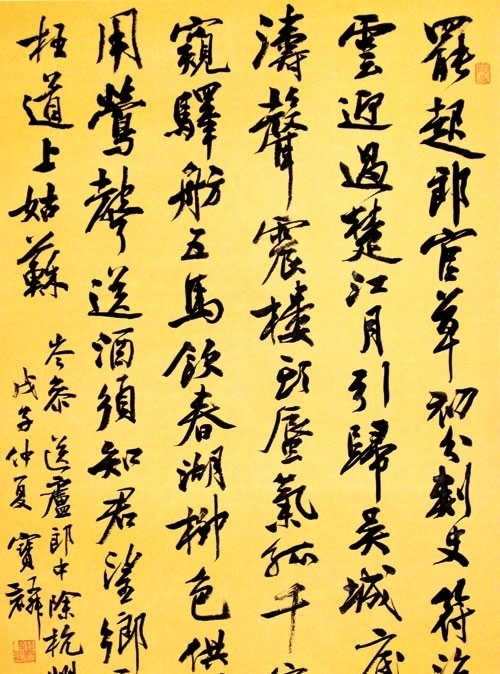 罷起郎官草初分刺史符
雲迎過楚江月引歸吳城底
濤聲震樓蜃氣孤千
窺驛舫五馬飲春湖柳色供
用鶯聲送酒須知君望鄉
枉道上姑蘇
岑參送廬郎中除杭州
戊子仲夏寶麟